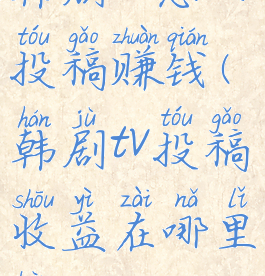 tóu gǎo zhuàn qián
投稿赚钱(
hán jù tóu gǎo
韩剧tv投稿
shōu yì zài nǎ lǐ
收益在哪里